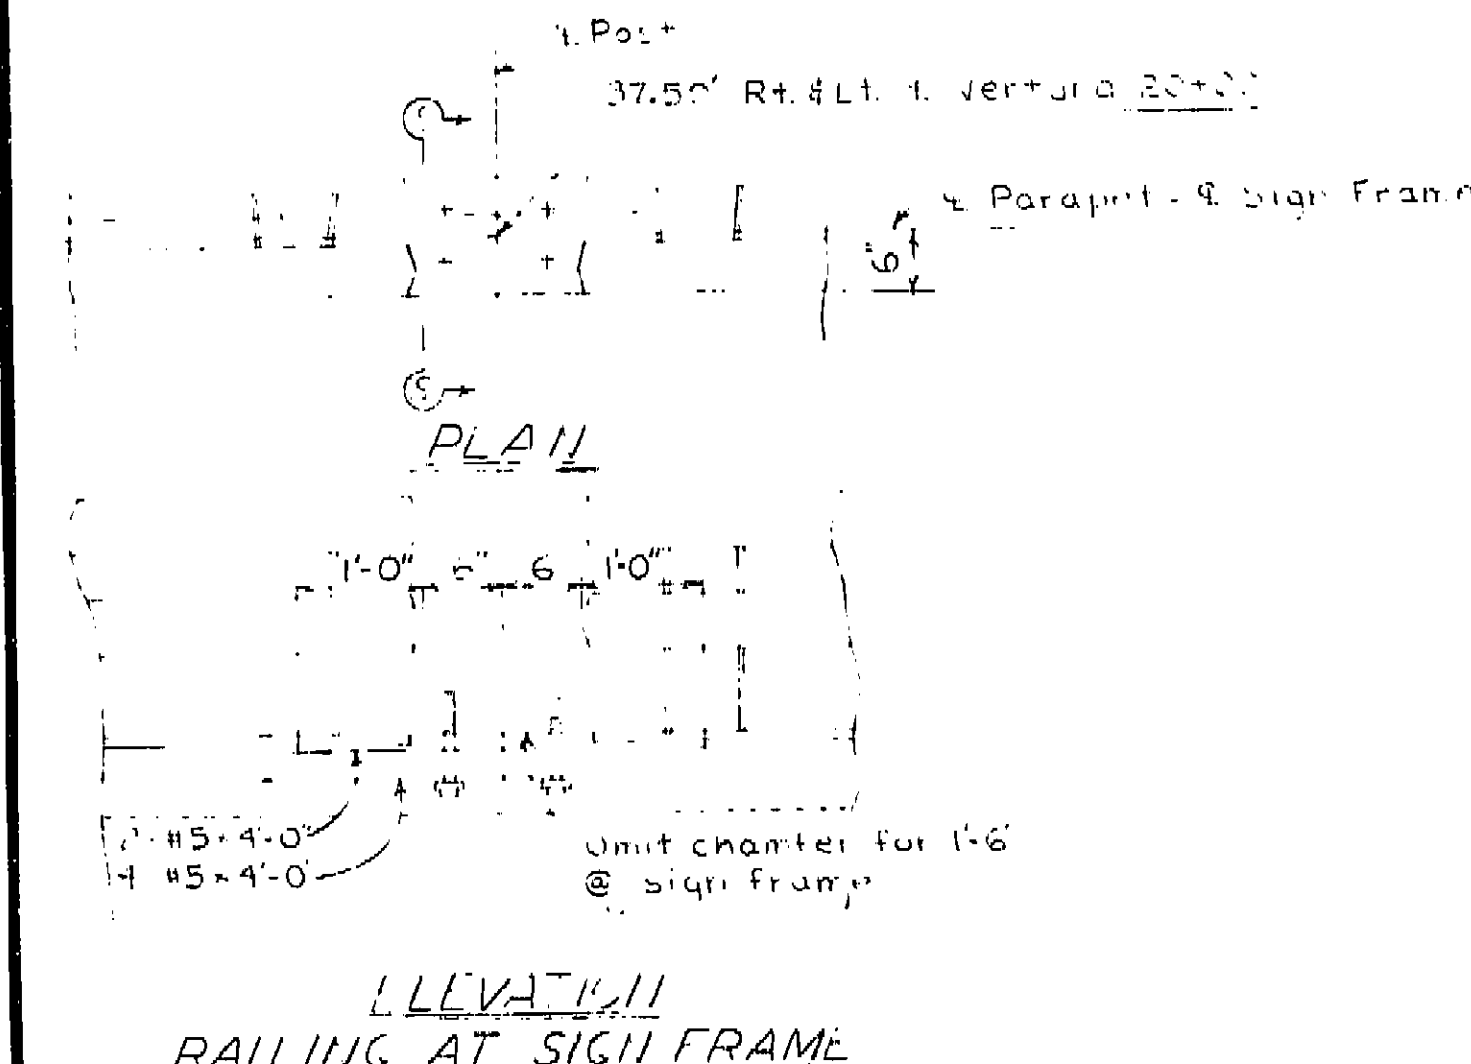 ℄ Post
37.50' Rt. & Lt. ℄ Ventura 20+00
℄ Parapet - ℄ Sign Frame
6"
PLAN
1'-0" 6" 6 1'-0"
#5 × 4'-0"
#5 × 4'-0"
Omit chamfer for 1'-6"
@ sign frame
ELEVATION
RAILING AT SIGN FRAME